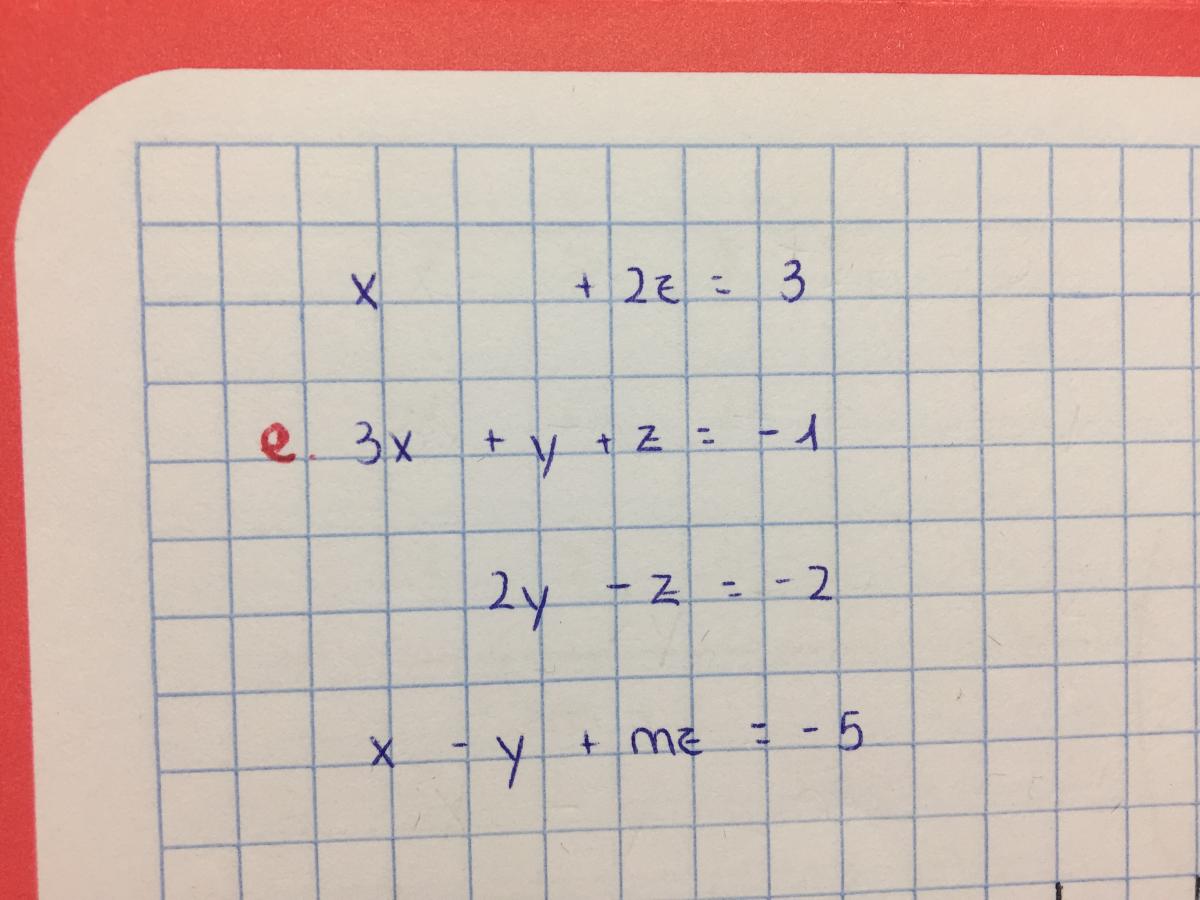 x + 2z = 3
e. 3x + y + z = -1
2y - z = -2
x - y + mz = -5